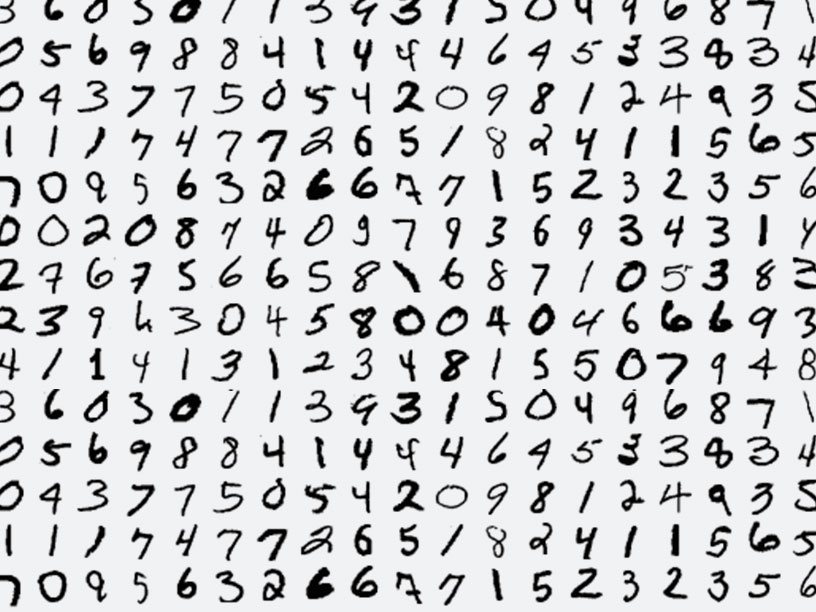 3 6 0 3 0 1 1 3 9 3 1 5 0 4 9 6 8 7 1
0 5 6 9 8 8 4 1 4 4 4 6 4 5 3 3 8 3 4
0 4 3 7 7 5 0 5 4 2 0 9 8 1 2 4 9 3 5
1 1 1 7 4 7 7 2 6 5 1 8 2 4 1 1 5 6 5
7 0 9 5 6 3 2 6 6 7 7 1 5 2 3 2 3 5 6
0 0 2 0 8 7 4 0 9 7 9 3 6 9 3 4 3 1 4
2 7 6 7 5 6 6 5 8 1 6 8 7 1 0 5 3 8 3
2 3 9 4 3 0 4 5 8 0 0 4 0 4 6 6 6 9 3
4 1 1 4 1 3 1 2 3 4 8 1 5 5 0 7 9 4 8
3 6 0 3 0 1 1 3 9 3 1 5 0 4 9 6 8 7 1
0 5 6 9 8 8 4 1 4 4 4 6 4 5 3 3 8 3 4
0 4 3 7 7 5 0 5 4 2 0 9 8 1 2 4 9 3 5
1 1 1 7 4 7 7 2 6 5 1 8 2 4 1 1 5 6 5
7 0 9 5 6 3 2 6 6 7 7 1 5 2 3 2 3 5 6